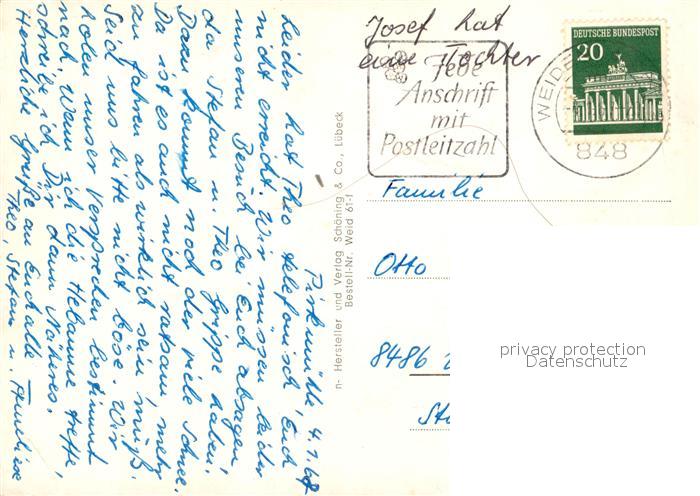 Pirkmühle, 4.1.68
Leider hat Theo telefonisch Euch
nicht erreicht. Wir müssen leider
unseren Besuch bei Euch absagen,
da Stefan u. Theo Grippe haben.
Dazu kommt noch der viele Schnee.
Da ist es auch nicht ratsam mehr
zu fahren als wirklich sein muß.
Seid uns bitte nicht böse. Wir
holen unser Versprechen bestimmt
nach. Wenn ich die Hebamme treffe,
schreibe ich Dir dann Näheres.
Herzliche Grüße an Euch alle
Theo, Stefan u. Anneliese
Josef hat
eine Tochter
n- Hersteller und Verlag Schöning & Co., Lübeck
Bestell-Nr. Weid 61-f
Jede
Anschrift
mit
Postleitzahl
DEUTSCHE BUNDESPOST
20
WEIDE
848
Familie
Otto
8486
privacy protection
Datenschutz